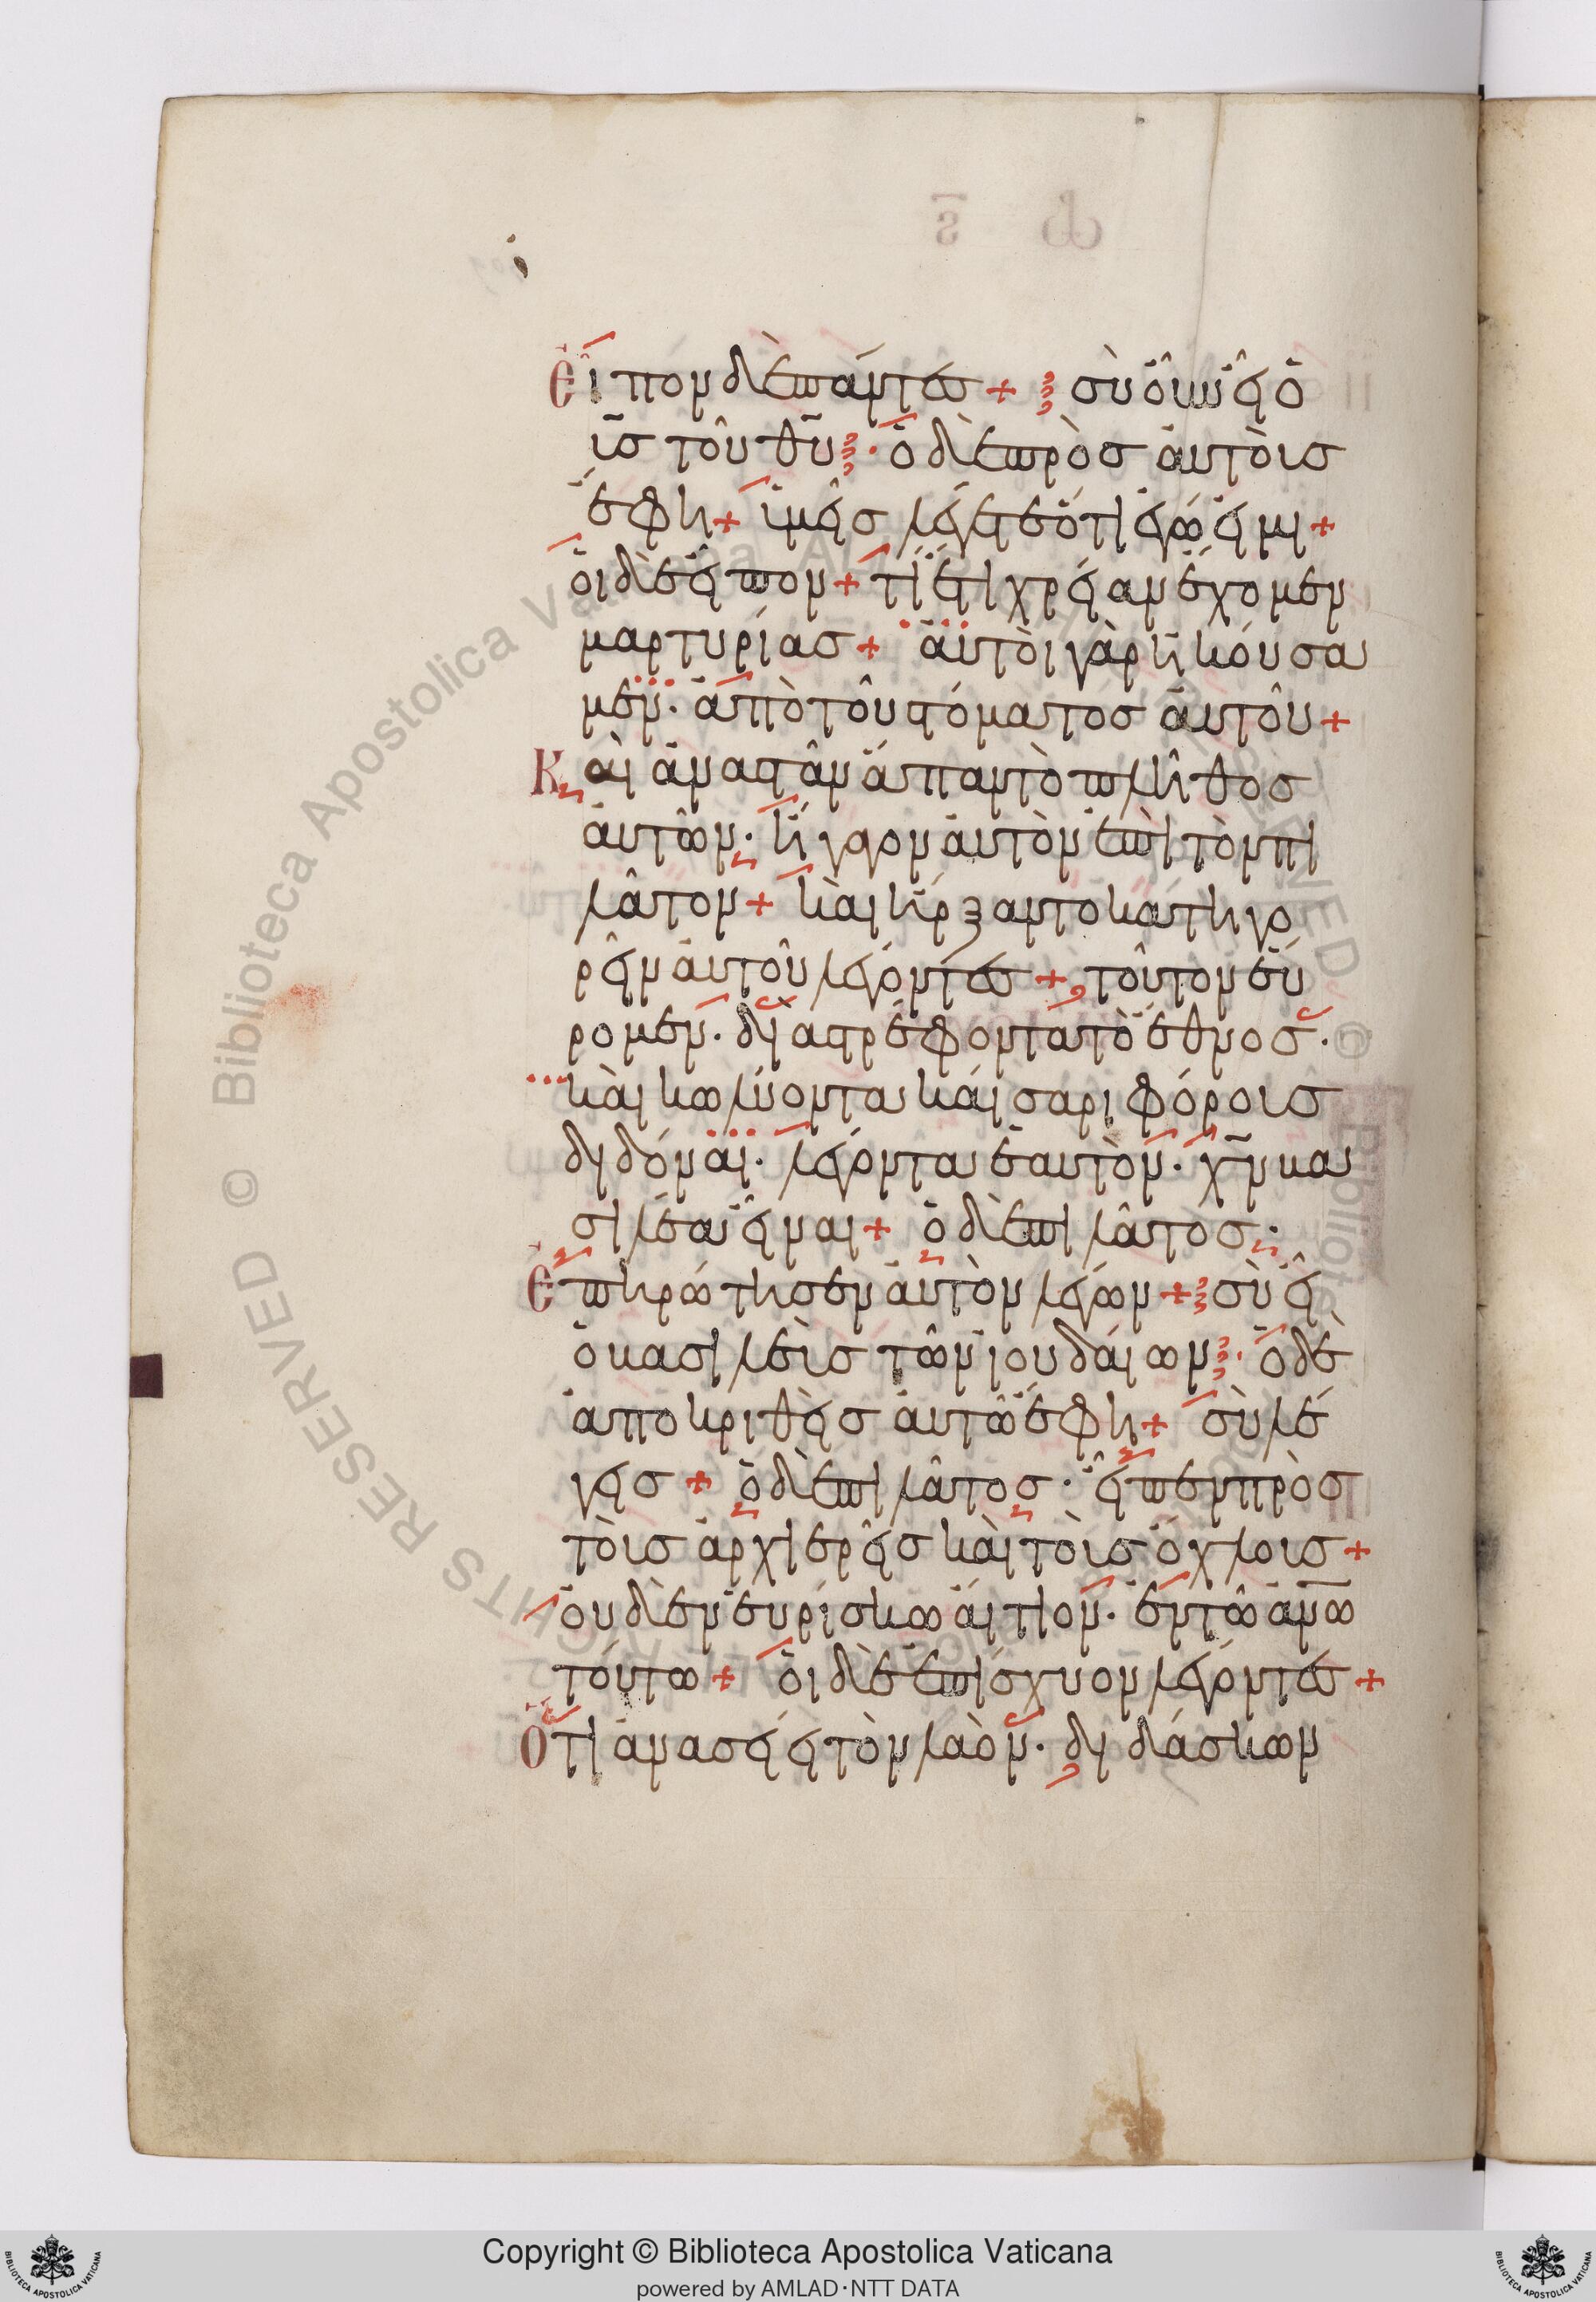 εἶπον δὲ πάντες + σὺ οὖν εἶ ὁ
υ̅ς̅ τοῦ θ̅υ̅ · ὁ δὲ πρὸς αὐτοὺς
ἔφη + ὑμεῖς λέγετε ὅτι ἐγώ εἰμι +
οἱ δὲ εἶπον + τί ἔτι χρείαν ἔχομεν
μαρτυρίας + αὐτοὶ γὰρ ἠκούσα
μεν · ἀπὸ τοῦ στόματος αὐτοῦ +
Καὶ ἀναστὰν ἅπαν τὸ πλῆθος
αὐτῶν · ἤγαγον αὐτὸν ἐπὶ τὸν πι
λᾶτον + καὶ ἤρξαντο κατηγο
ρεῖν αὐτοῦ λέγοντες + τοῦτον εὕ
ρομεν · διαστρέφοντα τὸ ἔθνος ·
καὶ κωλύοντα καίσαρι φόρους
διδόναι · λέγοντα ἑαυτὸν · χ̅ν̅ βα
σιλέα εἶναι + ὁ δὲ πιλᾶτος ·
Ἐπηρώτησεν αὐτὸν λέγων + σὺ εἶ
ὁ βασιλεὺς τῶν ἰουδαίων · ὁ δὲ
ἀποκριθεὶς αὐτῶ ἔφη + σὺ λέ
γεις + ὁ δὲ πιλᾶτος · εἶπεν πρὸς
τοὺς ἀρχιερεῖς καὶ τοὺς ὄχλους +
οὐδὲν εὑρίσκω αἴτιον · ἐν τῶ α̅ν̅ω̅
τούτω + οἱ δὲ ἐπίσχυον λέγοντες +
Ὅτι ἀνασείει τὸν λαὸν · διδάσκων
Copyright © Biblioteca Apostolica Vaticana
powered by AMLAD·NTT DATA